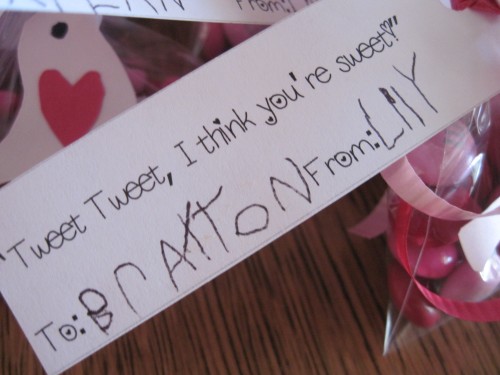 From:
"Tweet Tweet, I think you're sweet!"
To: BrAXTON From: LIlY